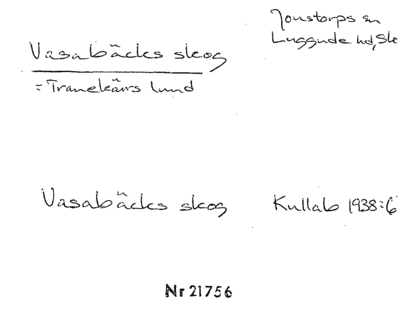 Jonstorps sn
Luggude hd, Sk
Vasabäcks skog
= Tranekärrs lund
Vasabäcks skog
Kullab 1938:6
Nr 21756